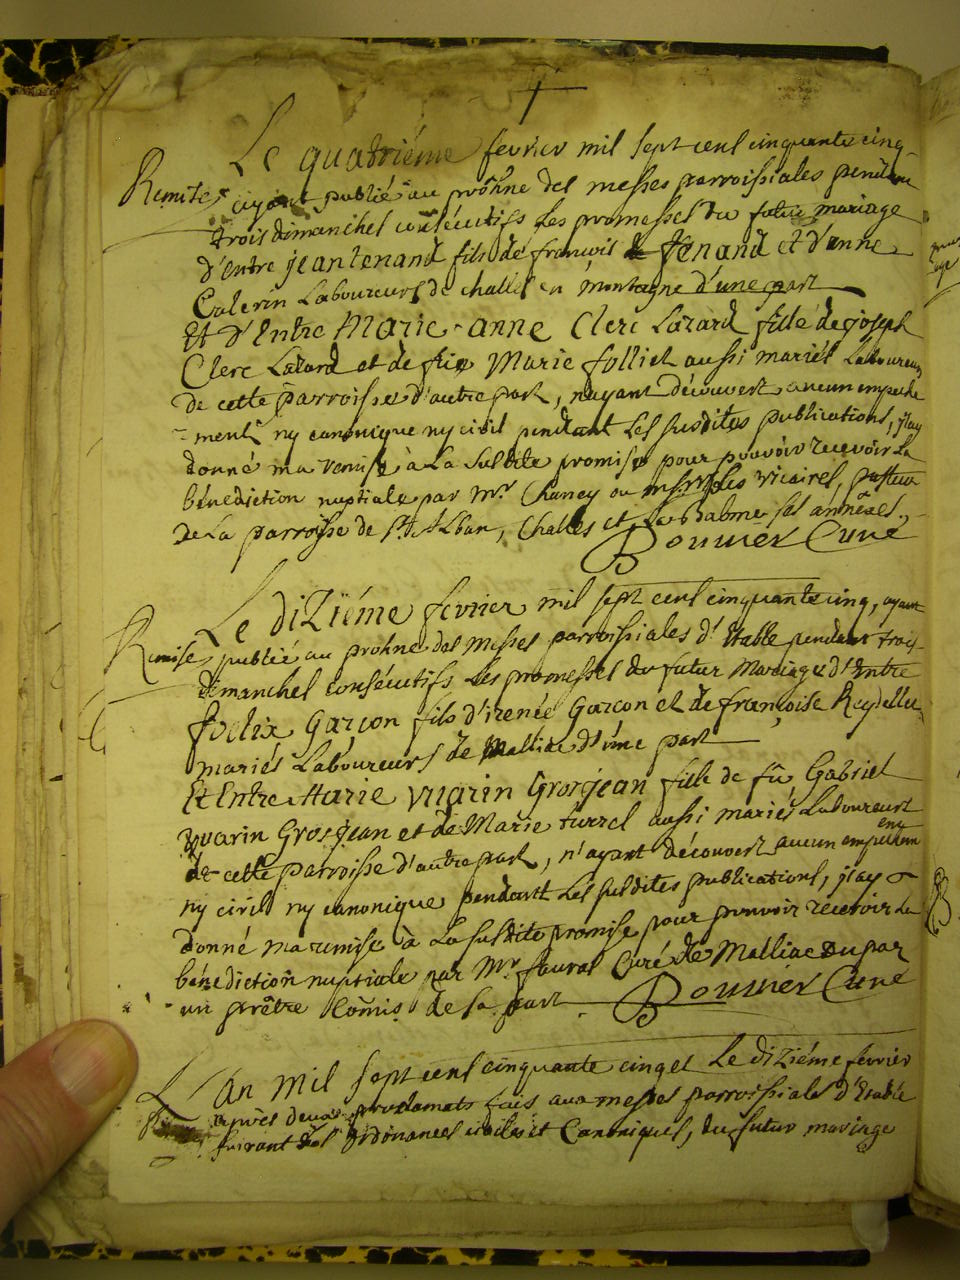 Le quatriéme fevrier mil sept cent cinquante cinq
Remise ayant publié au prône des messes parroissiales pendant
trois dimanches consécutifs les promesses du futur mariage
d'Entre jean tenand fils de françois tenand et d'anne
Laboureurs de challes en montagne d'une part
Et d'Entre Marie-anne Clerc Lazard fille de joseph
Clerc Lazard et de Marie folliet aussi mariés Laboureurs
de cette parroisse d'autre part, n'ayant découvert aucun empeche
-ment ny canonique ny civil pendant Les susdites publications, j'ay
donné ma remise à La susdite promise pour pouvoir recevoir La
bénédiction nuptiale par mr. Chaney ou vicaires,
de La parroisse de St. Alban, Challes et La Balme ses annéxes.
Bouvier Curé
Le diZiéme fevrier mil sept cent cinquante cinq, ayant
Remise publié au prône des Messes parroissiales d'Etable pendant trois
dimanches consécutifs Les promesses du futur Mariage d'Entre
foelix Garçon fils d'irenée Garçon et de françoise Reydellet
mariés Laboureurs de d'une part
Et Entre Marie vuarin Grosjean fille de fû Gabriel
vuarin Grosjean et de Marie turrel aussi mariés Laboureurs
de cette parroisse d'autre part, n'ayant découvert aucun
ny civil ny canonique pendant Les susdites publications, j'ay
donné ma remise à La susdite promise pour pouvoir recevoir La
bénédiction nuptiale par Mr. Curé de ou par
un prêtre Com̃is de sa part
Bouvier Curé
L'An mil sept cent cinquante cinq et Le diziéme fevrier
après deux proclamats fais aux messes parroissiale d'Etable
suivant Les Ordonances civiles et Canoniques, du futur mariage